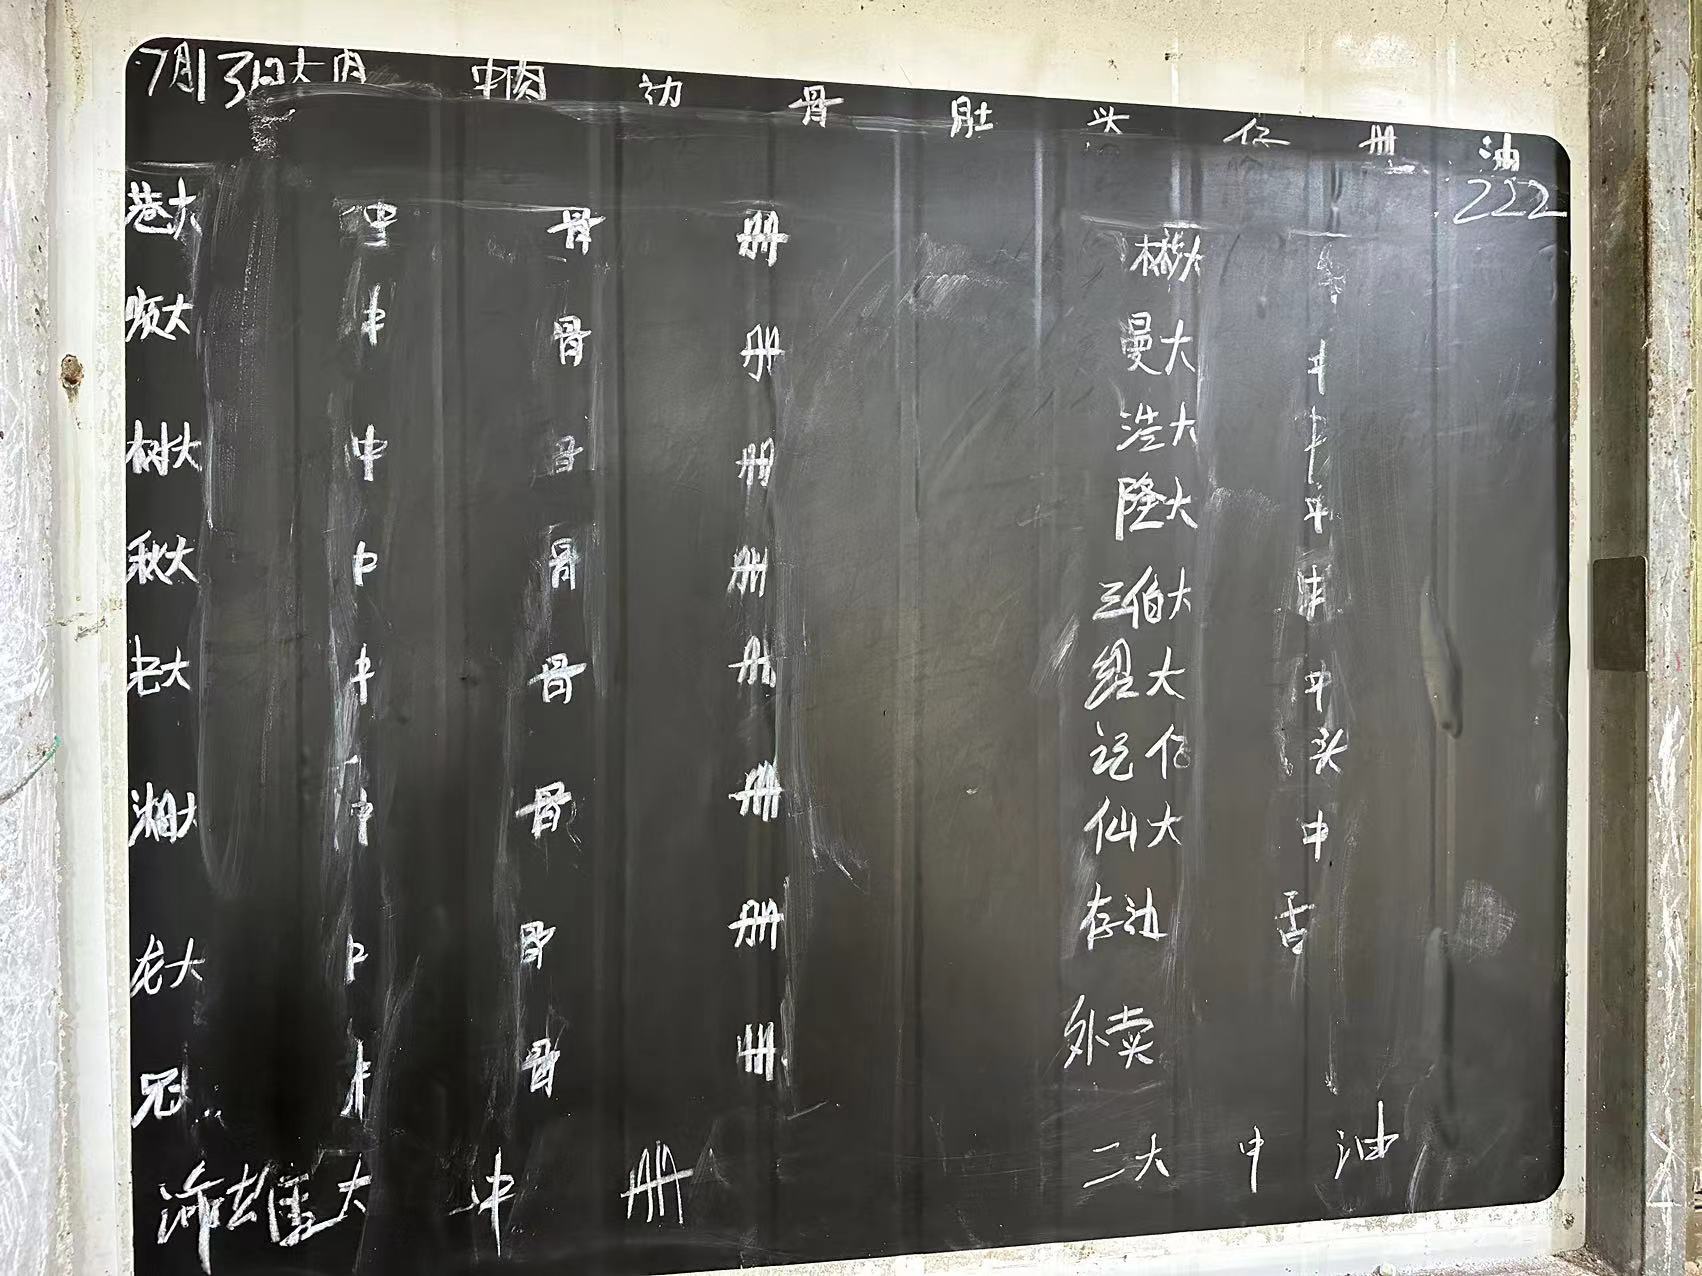 7月13日大肉 中肉 边 骨 肚 头 仔 册 油
222
巷大 中 骨 册 彬大
顺大 中 骨 册 曼大 中
树大 中 骨 册 浩大 中
隆大 中
秋大 中 骨 册 三伯大 中
老大 中 骨 册 绍大 中
记仔 头
湘大 中 骨 册 仙大 中
龙大 中 骨 册 存边 舌
冠 中 骨 册 外卖
雄大 中 册 二大 中 油